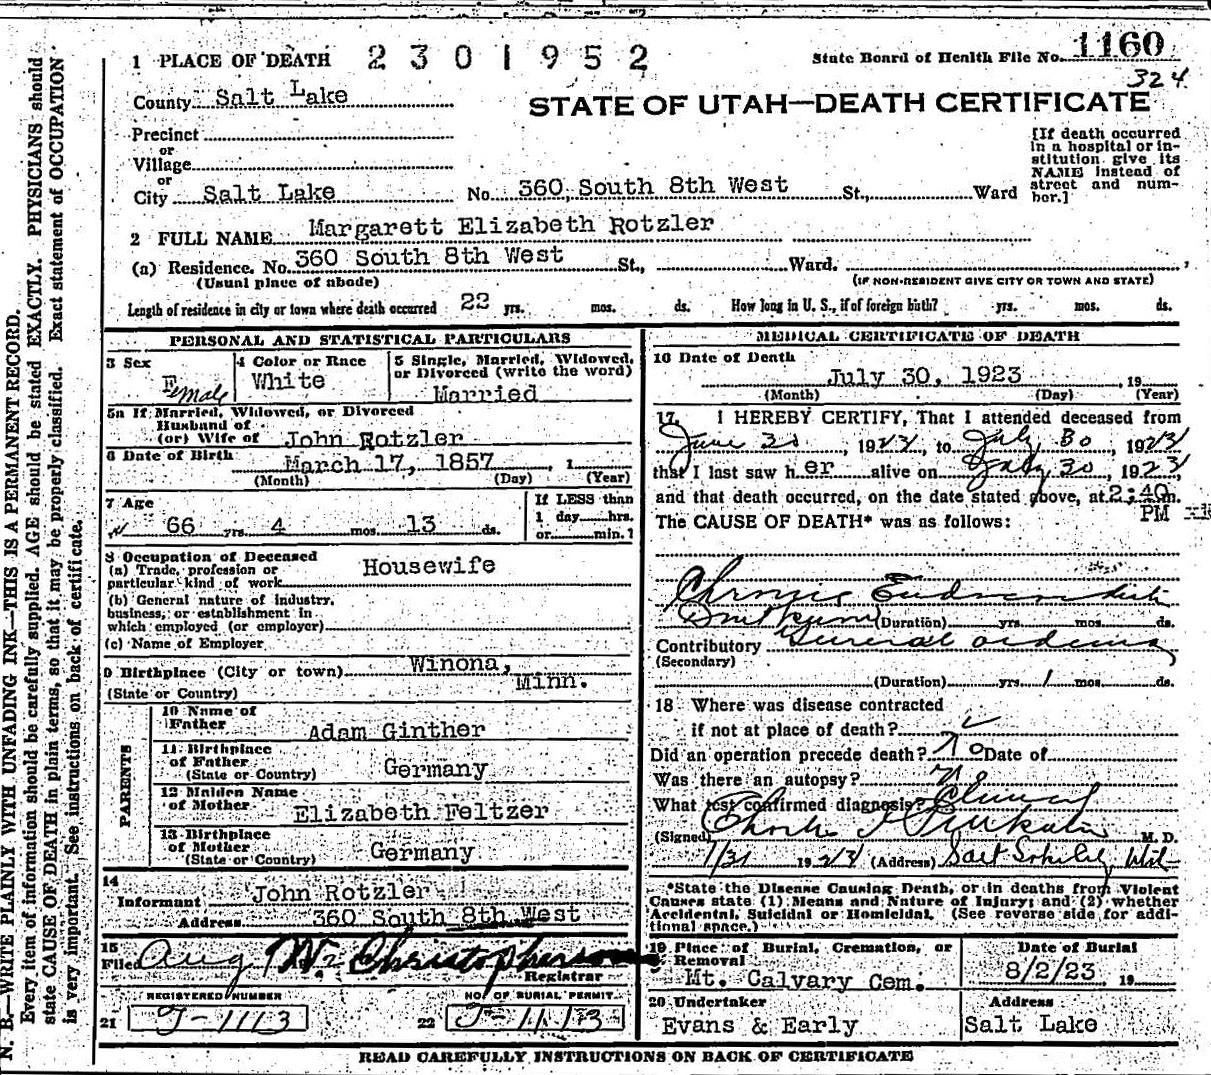 1 PLACE OF DEATH 2301952 State Board of Health File No. 1160
324
County Salt Lake
STATE OF UTAH—DEATH CERTIFICATE
Precinct
or
Village
or
City Salt Lake No. 360 South 8th West St., Ward
[If death occurred
in a hospital or in-
stitution give its
NAME instead of
street and num-
ber.]
2 FULL NAME Margarett Elizabeth Rotzler
(a) Residence. No. 360 South 8th West St., Ward.
(Usual place of abode) (IF NON-RESIDENT GIVE CITY OR TOWN AND STATE)
Length of residence in city or town where death occurred 22 yrs. mos. ds. How long in U. S., if of foreign birth? yrs. mos. ds.
PERSONAL AND STATISTICAL PARTICULARS
3 Sex
Female
4 Color or Race
White
5 Single, Married, Widowed,
or Divorced (write the word)
Married
5a If Married, Widowed, or Divorced
Husband of
(or) Wife of John Rotzler
6 Date of Birth March 17, 1857, 1
(Month) (Day) (Year)
7 Age
66 yrs. 4 mos. 13 ds.
If LESS than
1 day hrs.
or min.?
8 Occupation of Deceased
(a) Trade, profession or
particular kind of work Housewife
(b) General nature of industry,
business, or establishment in
which employed (or employer)
(c) Name of Employer
9 Birthplace (City or town) Winona,
(State or Country) Minn.
PARENTS
10 Name of
Father Adam Ginther
11 Birthplace
of Father Germany
(State or Country)
12 Maiden Name
of Mother Elizabeth Feltzer
13 Birthplace
of Mother Germany
(State or Country)
14
Informant John Rotzler
Address 360 South 8th West
15
Filed Aug 1 Christopherson
Registrar
REGISTERED NUMBER NO. OF BURIAL PERMIT
21 J-1113 22 J-1113
MEDICAL CERTIFICATE OF DEATH
16 Date of Death
July 30, 1923, 19
(Month) (Day) (Year)
17 I HEREBY CERTIFY, That I attended deceased from
June 30, 1923, to July 30, 1923
that I last saw her alive on July 30, 1923,
and that death occurred, on the date stated above, at 2:40 m.
PM
The CAUSE OF DEATH* was as follows:
Chronic
(Duration) yrs. mos. ds.
Contributory General
(Secondary)
(Duration) yrs. 1 mos. ds.
18 Where was disease contracted
if not at place of death?
Did an operation precede death? No Date of
Was there an autopsy? No
What test confirmed diagnosis? Clinical
(Signed) M. D.
7/31 1923 (Address) Salt Lake City, Utah
*State the Disease Causing Death, or in deaths from Violent
Causes state (1) Means and Nature of Injury; and (2) whether
Accidental, Suicidal or Homicidal. (See reverse side for addi-
tional space.)
19 Place of Burial, Cremation, or
Removal
Mt. Calvary Cem.
Date of Burial
8/2/23 19
20 Undertaker
Evans & Early
Address
Salt Lake
READ CAREFULLY INSTRUCTIONS ON BACK OF CERTIFICATE
N. B.—WRITE PLAINLY WITH UNFADING INK—THIS IS A PERMANENT RECORD.
Every item of information should be carefully supplied. AGE should be stated EXACTLY. PHYSICIANS should
state CAUSE OF DEATH in plain terms, so that it may be properly classified. Exact statement of OCCUPATION
is very important. See instructions on back of certificate.